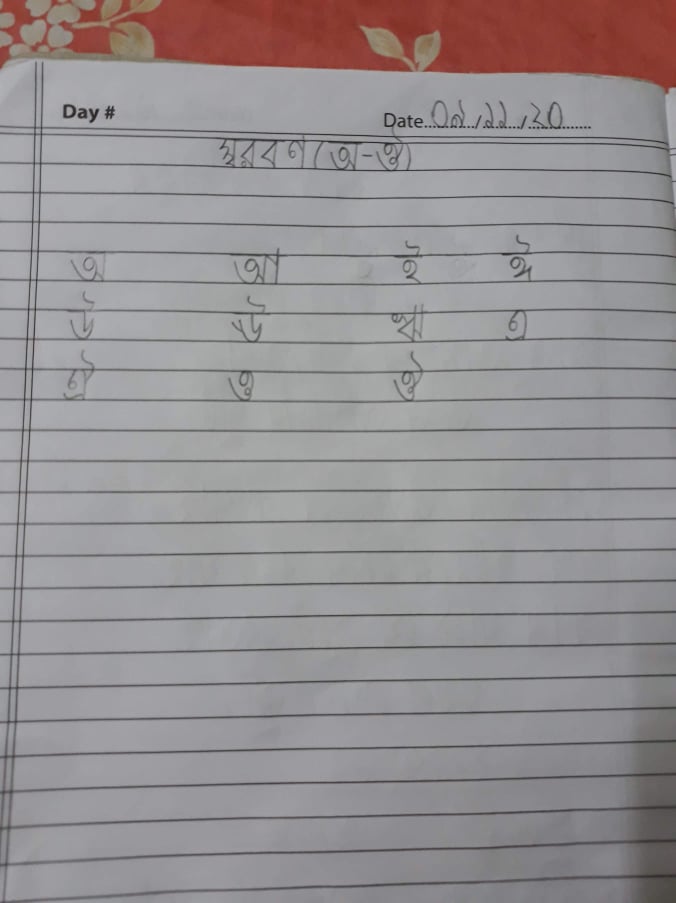 Day # Date ০৯/১১/২০
স্বরবর্ণ (অ-ঔ)
অ আ ই ঈ
উ ঊ ঋ এ
ঐ ও ঔ